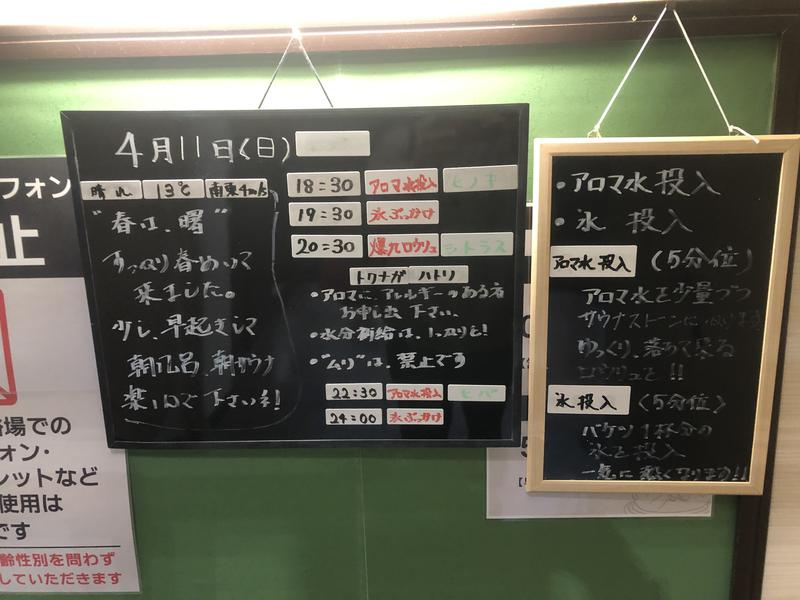 4月11日(日)
晴れ 13℃ 南東4m/s
"春は、曙"
すっかり春めいて
来ました。
少し、早起きして
朝風呂、朝サウナ
楽しんで下さいネ!
18:30 アロマ水投入 ヒノキ
19:30 氷ぶっかけ
20:30 爆風ロウリュ シトラス
トクナガ ハトリ
・アロマに、アレルギーのある者
お申し出下さい。
・水分補給は、しっかりと!
・"ムリ"は、禁止です
22:30 アロマ水投入 ヒバ
24:00 氷ぶっかけ
・アロマ水投入
・氷 投入
アロマ水投入 (5分位)
アロマ水を少量づつ
サウナストーンに
ゆっくり、
ロウリュと!!
氷投入 〈5分位〉
バケツ1杯分の
氷を投入
一気に熱くなります!!
フォン
止
浴場での
フォン・
レットなど
使用は
です
齢性別を問わず
していただきます